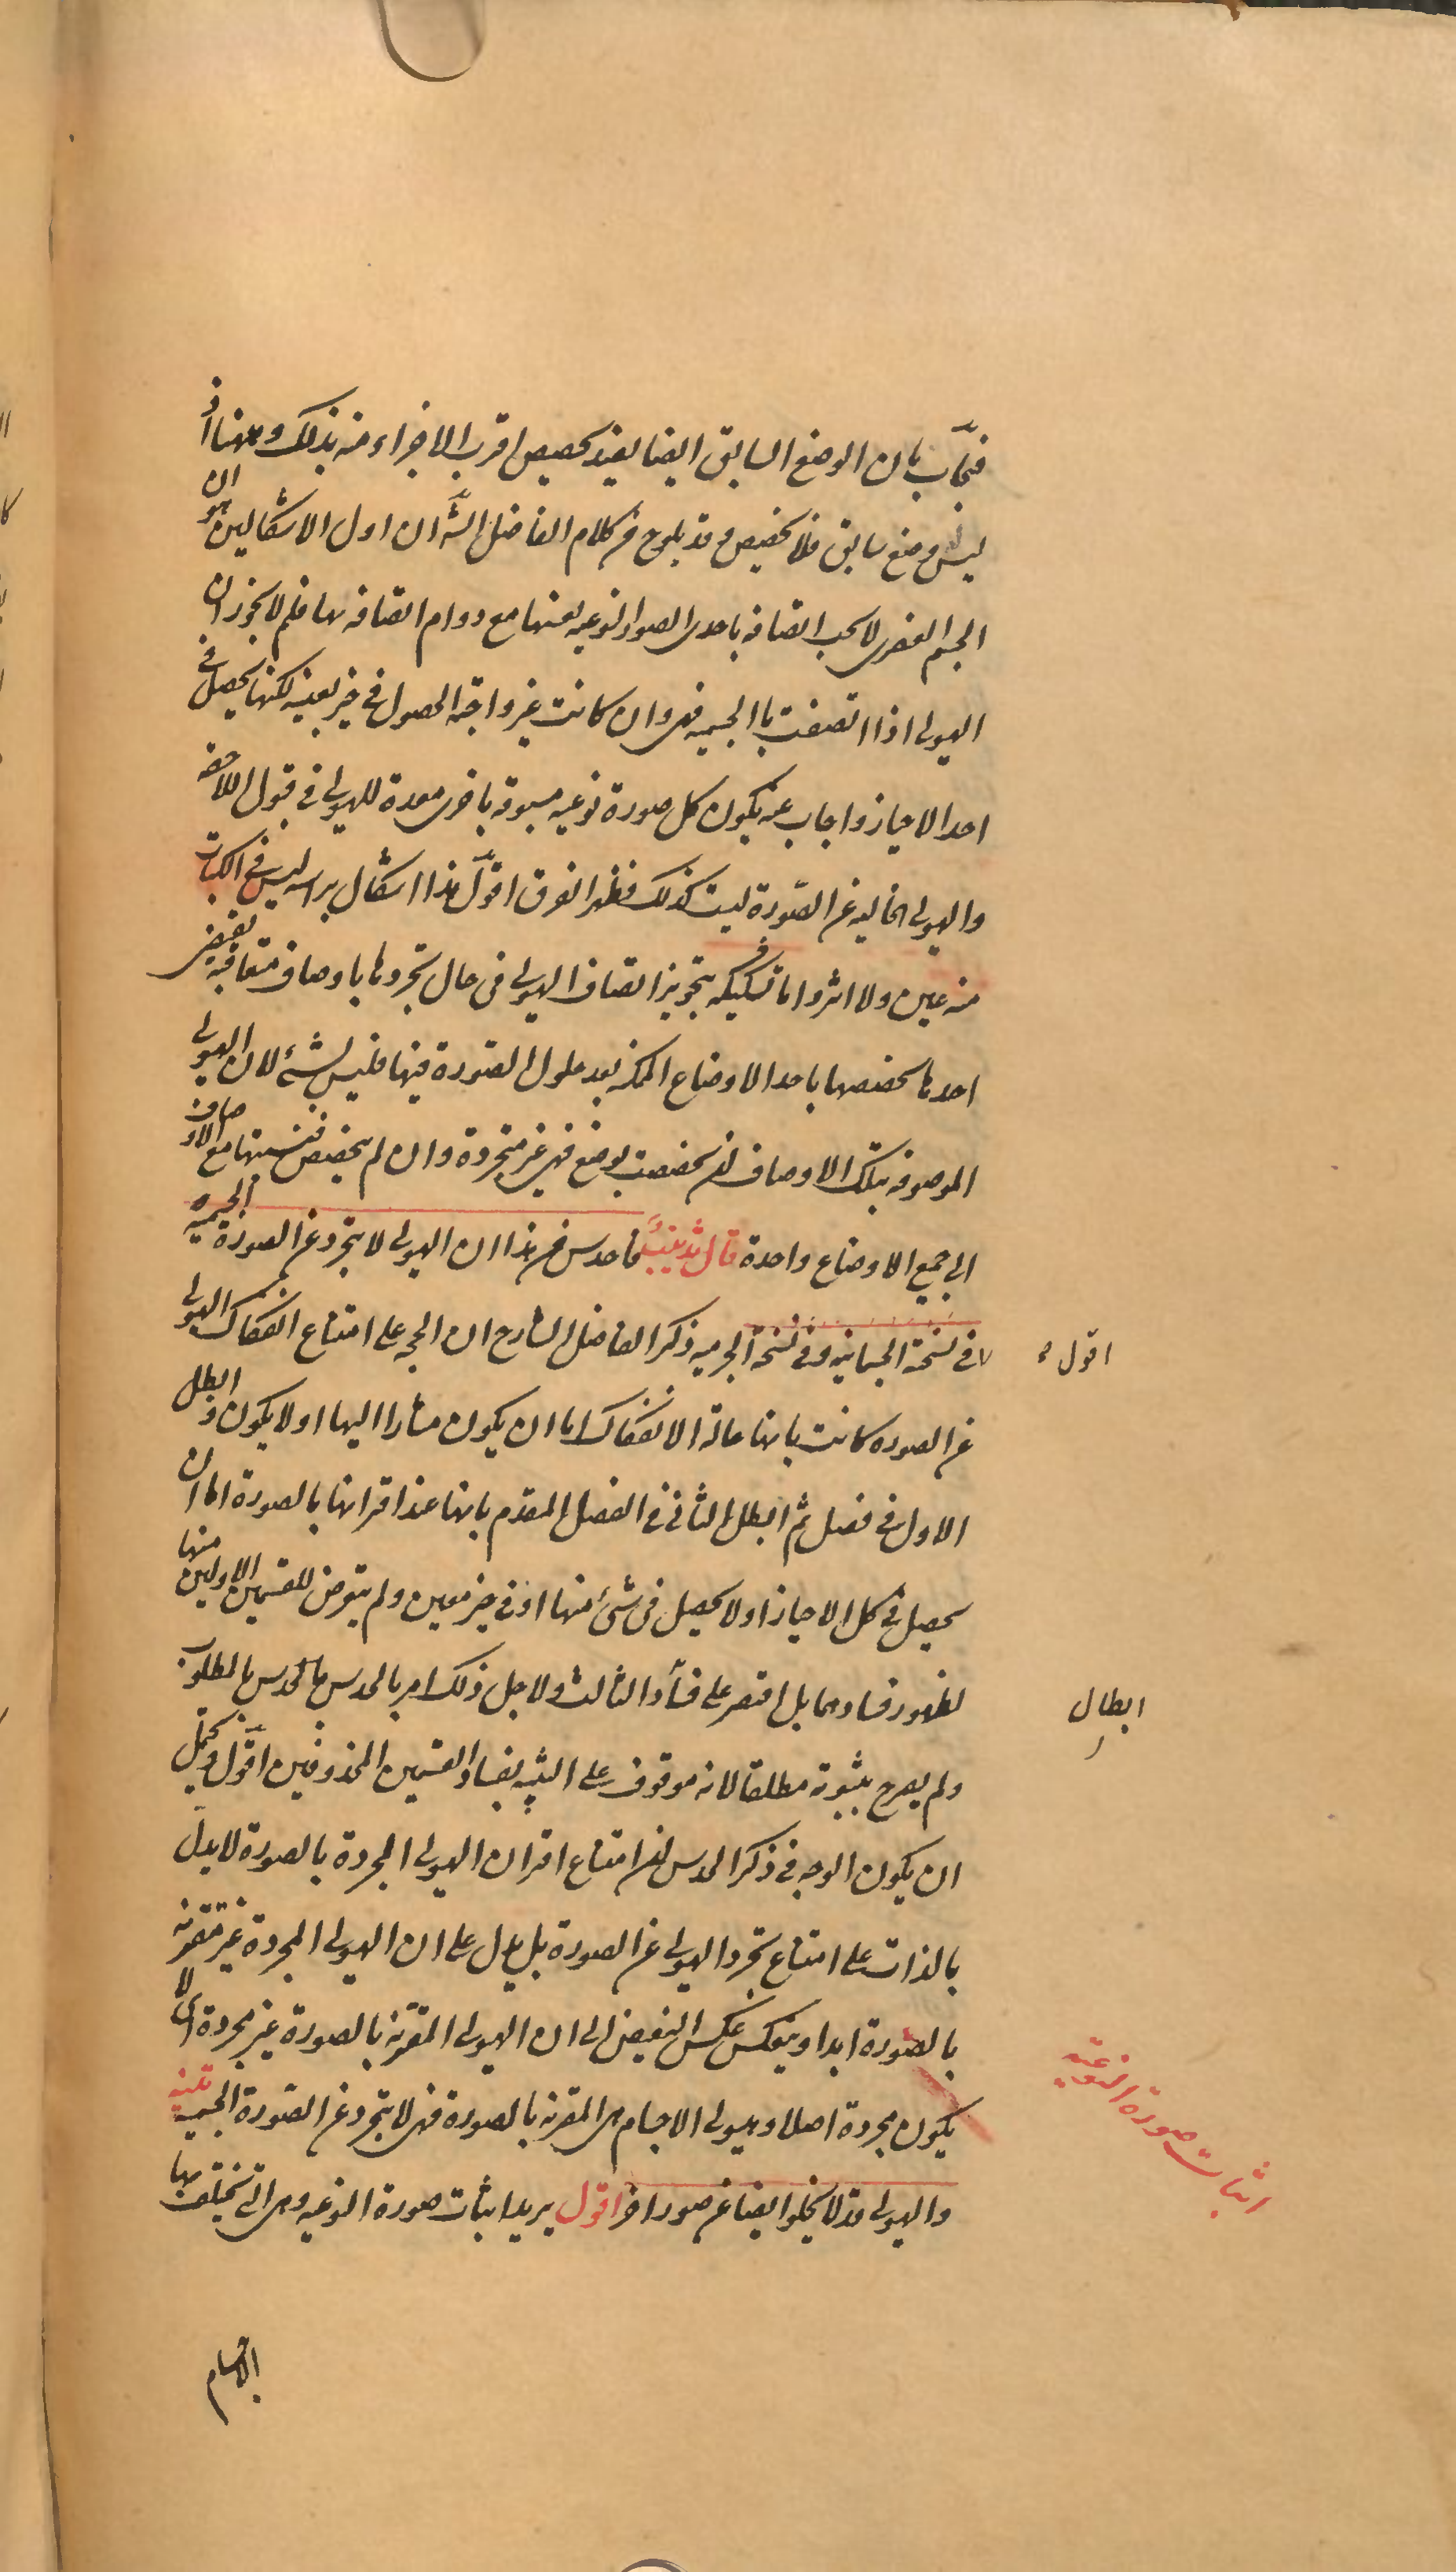 فنجاب بان الوضع السابق ايضا يفيد تخصيص اقرب الاجزاء منه بذلك وههنا اذ
ليس وضع سابق فلا تخصيص وقد يلوح من كلام الفاضل الش ان اول الاشكالين هو ان
الجسم العنصرى لا يجب اتصافه باحدى الصور النوعيه بعينها مع دوام اتصافه بها فلم لا يجوز ان
الهيولى اذا اتصفت بالجسميه فهى وان كانت غير واجبة الحصول فى حيز بعينه لكنها يحصل فى
احد الاحياز واجاب عنه بكون كل صورة نوعيه مسبوقه باخرى معدة للهيولى فى قبول اللاحقه
والهيولى الخاليه عن الصورة ليست كذلك فظهر الفرق اقول هذا اشكال براسه ليس فى الكتاب
منه عين ولا اثر واما تشكيكه بتجويز اتصاف الهيولى فى حال تجردها باوصاف متعاقبه يقتضى
احدها تخصصها باحد الاوضاع الممكنه بعد حلول الصورة فيها فليس بشئ لان الهيولى
الموصوفه بتلك الاوصاف ان تخصصت بوضع فهى غير متجردة وان لم يتخصص فنسبتها مع الاوصاف
الى جميع الاوضاع واحدة قال تذنيب فاحدس من هذا ان الهيولى لا يتجرد عن الصورة الجسميه
فى نسخة الجسمانيه وفى نسخة الجرميه ذكر الفاضل الشارح ان الحجه على امتناع انفكاك الهيولى
اقول
عن الصوره كانت بانها حالة الانفكاك اما ان يكون مشارا اليها او لا يكون وابطل
الاول فى فصل ثم ابطل الثانى فى الفصل المقدم بانها عند اقترانها بالصورة اما ان
يحصل فى كل الاحياز او لا يحصل فى شئ منها او فى حيز معين ولم يتعرض للقسمين الاولين منها
لظهور فسادهما بل اقتصر على فساد الثالث ولاجل ذلك امر بالحدس بالمطلوب
ابطال
ولم يصرح بثبوته مطلقا لانه موقوف على التنبيه بفساد القسمين المحذوفين اقول ويحتمل
ان يكون الوجه فى ذكر الحدس ان امتناع اقتران الهيولى المجردة بالصورة لا يدل
بالذات على امتناع تجرد الهيولى عن الصورة بل يدل على ان الهيولى المجردة غير مقترنه
بالصورة ابدا وينعكس عكس النقيض الى ان الهيولى المقترنة بالصورة غير مجردة اى لا
يكون مجردة اصلا وهيولى الاجسام هى المقترنه بالصورة فهى لا يتجرد عن الصورة الجسميه تنبيه
والهيولى قد لا يخلو ايضا عن صور اخر اقول يريد اثبات صورة النوعيه وهى التى تختلف بها
اثبات صورة النوعيه
الاجسام